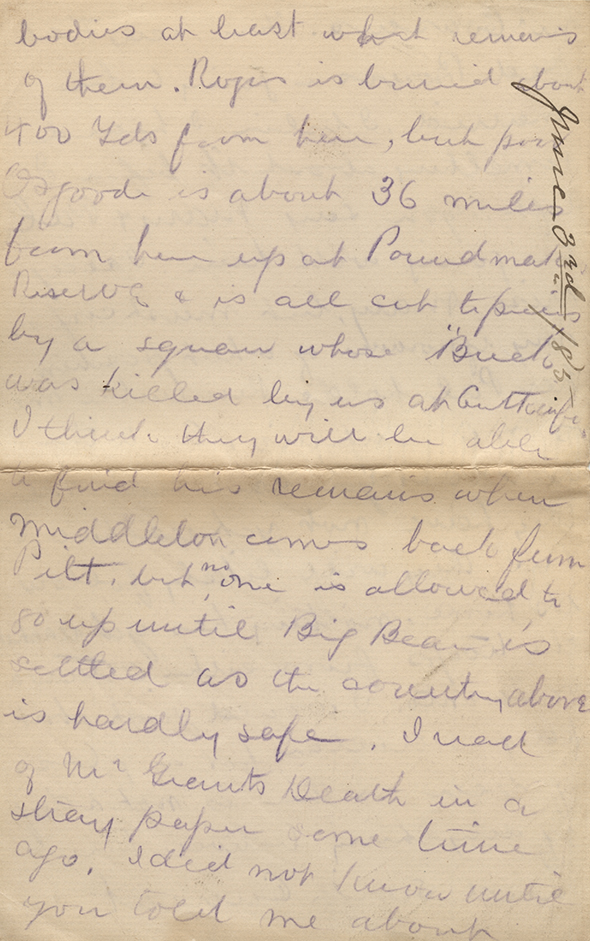 bodies at least what remains
of them. Rogers is buried about
400 Yds from here, but poor
Osgoode is about 36 miles
from here up at Poundmaker
Reserve & is all cut to pieces
by a squaw whose "Buck"
was killed by us at Cutt knife
I think they will be able
to find his remains when
Middleton comes back from
Pitt, but no one is allowed to
go up until Big Bear is
settled as the country above
is hardly safe. I read
of Mr Grants Death in a
stray paper some time
ago. I did not know until
you told me about
June 3rd /85